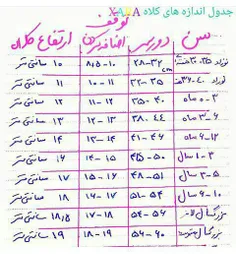 جدول اندازه های کلاه X A A
سن دور سر توقف اضافه کردن ارتفاع کلاه
۲۸-۳۲ cm ۸,۵-۱۰ ۱۰ سانتی متر
نوزاد ۳۲-۳۵ ۱۰-۱۱ ۱۱ سانتی متر
۳-۰ ماه ۳۵-۴۰ ۱۱-۱۲ ۱۲ سانتی متر
۶-۳ ماه ۴۱-۳۶ ۱۲-۱۳ ۱۳ سانتی متر
۱۲-۶ ماه ۴۱-۴۶ ۱۳-۱۴ ۱۴ سانتی متر
۳-۱ سال ۱۴-۱۵ ۱۶ سانتی متر
۵-۳ سال ۴۸-۵۱ ۱۵-۱۶ ۱۷ سانتی متر
۱۰-۶ سال ۵۱-۵۴ ۱۶-۱۷ ۱۸ سانتی متر
بزرگسال ۵۴-۵۶ ۱۷-۱۸ ۱۸,۵ سانتی متر
بزرگسال ۵۶-۶۰ ۱۸-۱۹ ۱۹ سانتی متر